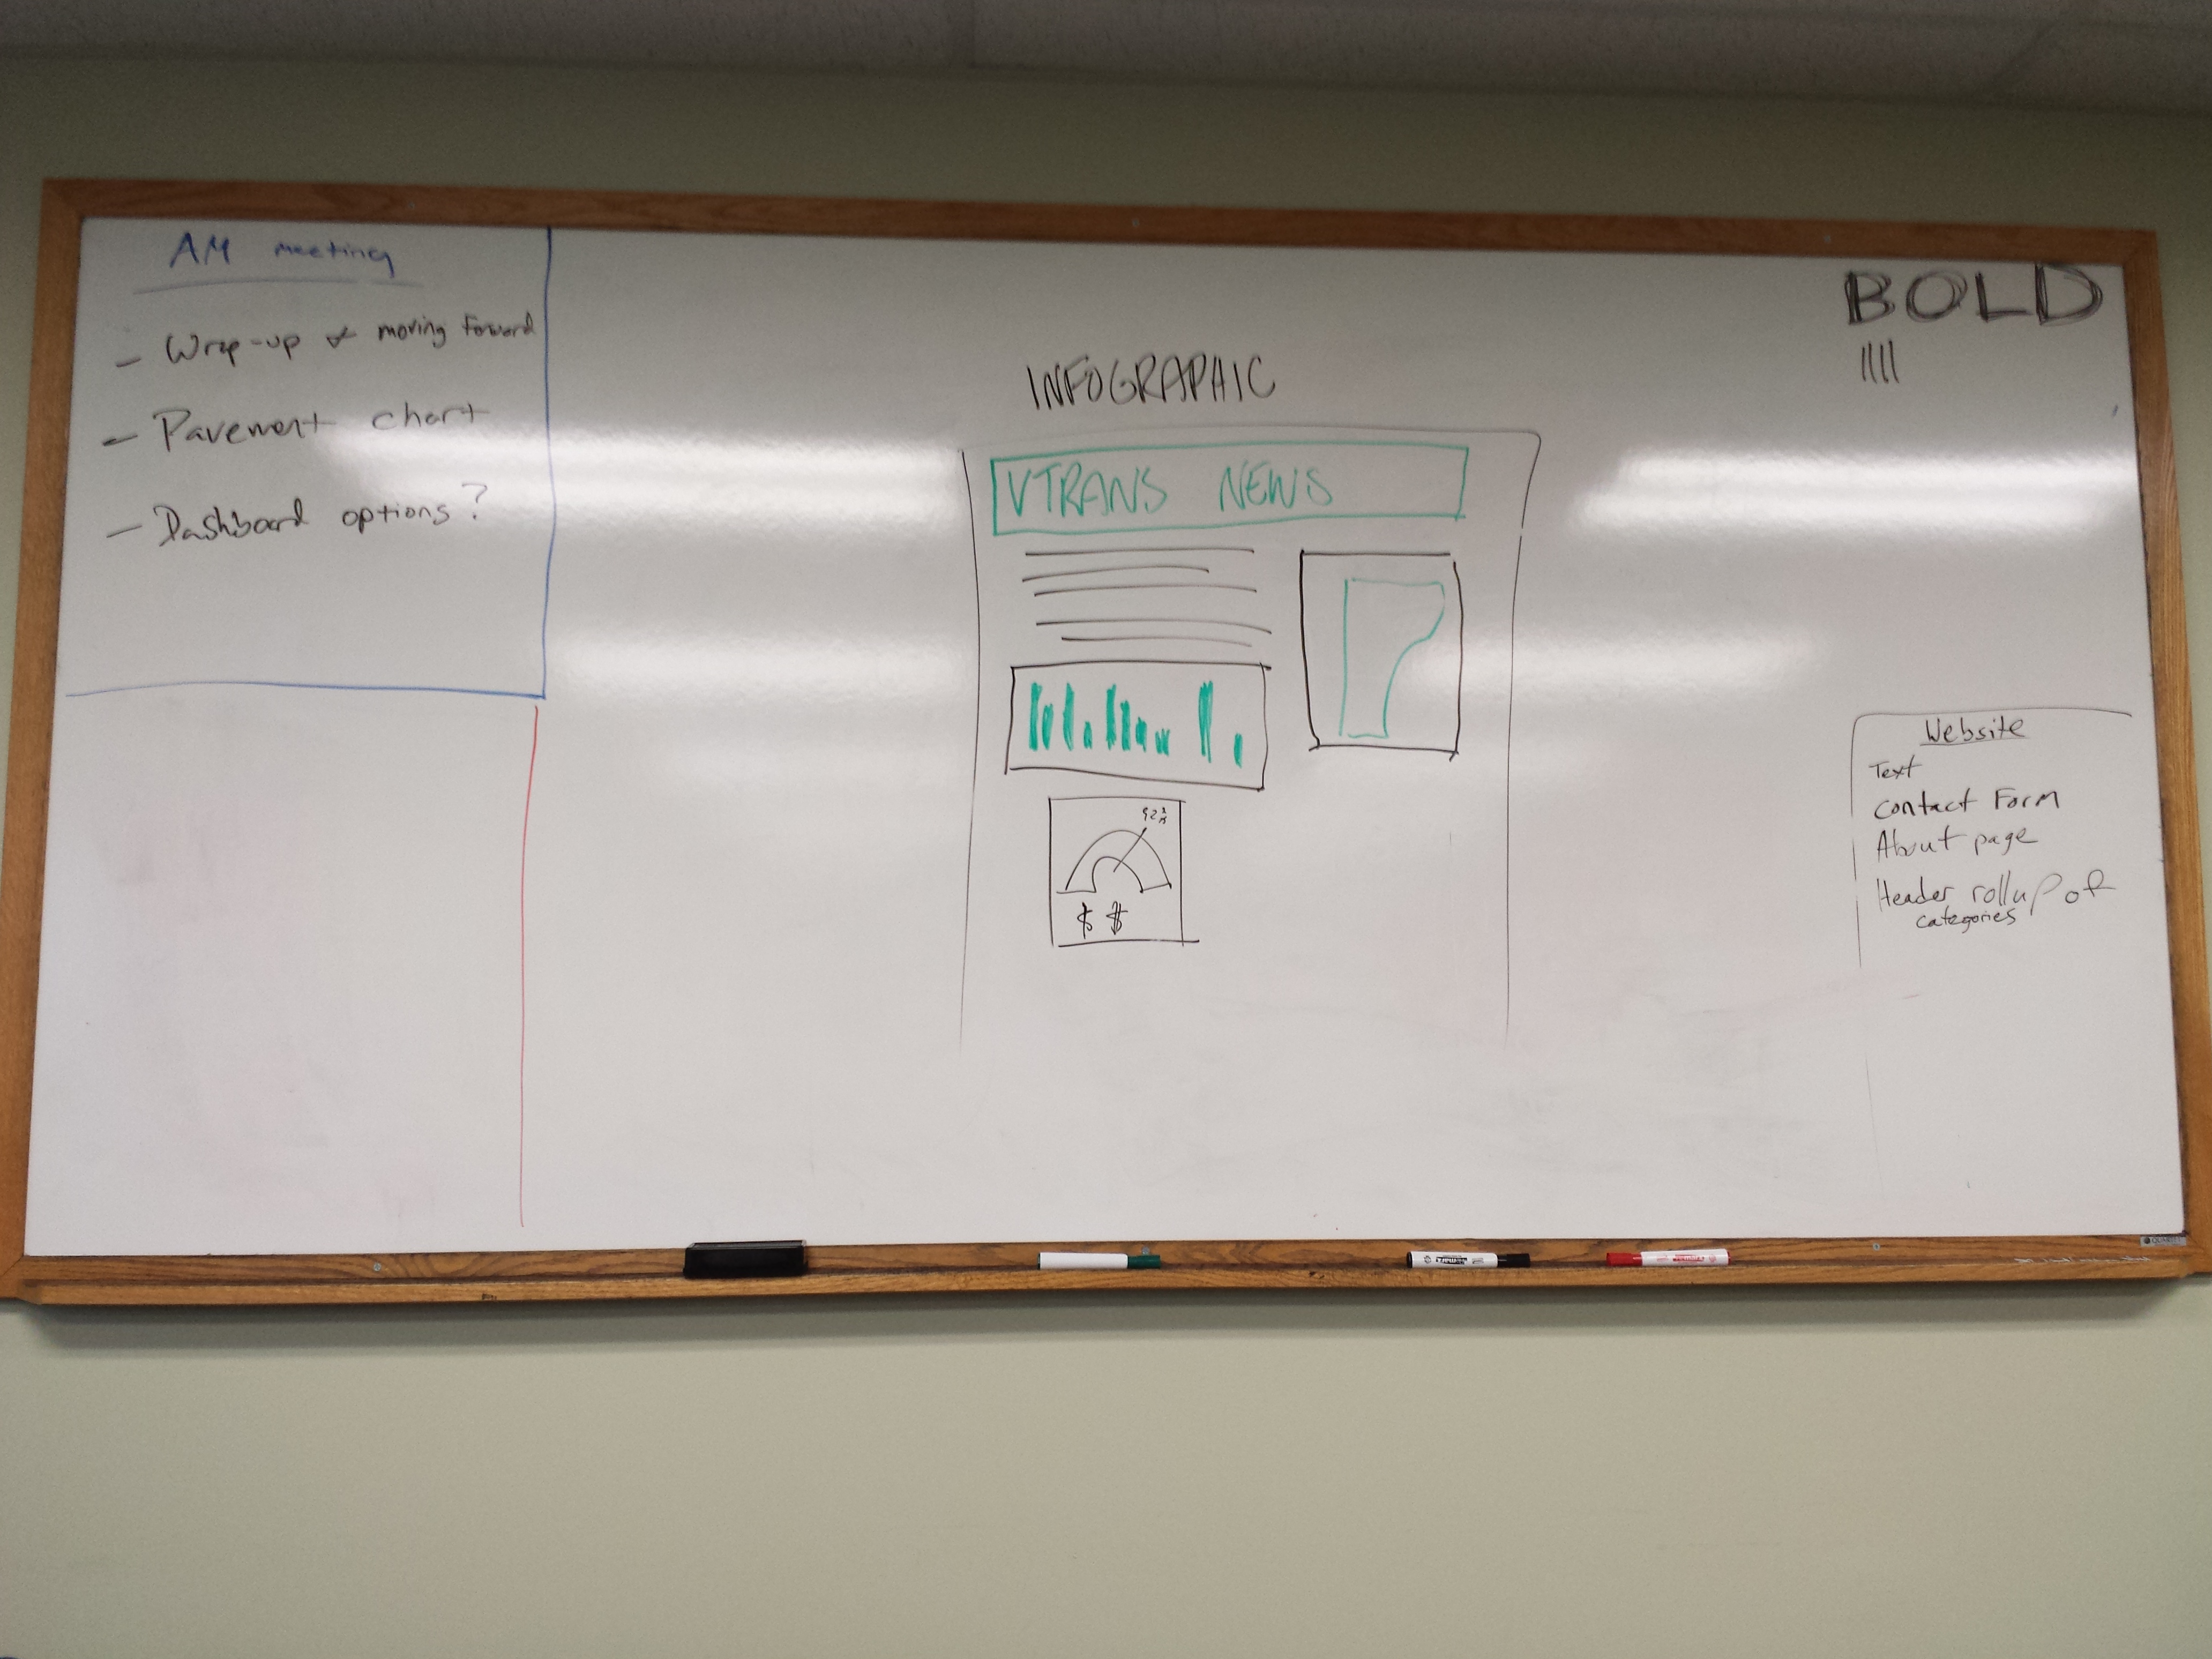 AM meeting
- Wrap-up & moving forward
- Pavement chart
- Dashboard options?
BOLD
INFOGRAPHIC
VTRANS NEWS
$ $
Website
Text
Contact Form
About page
Header rollup of
categories